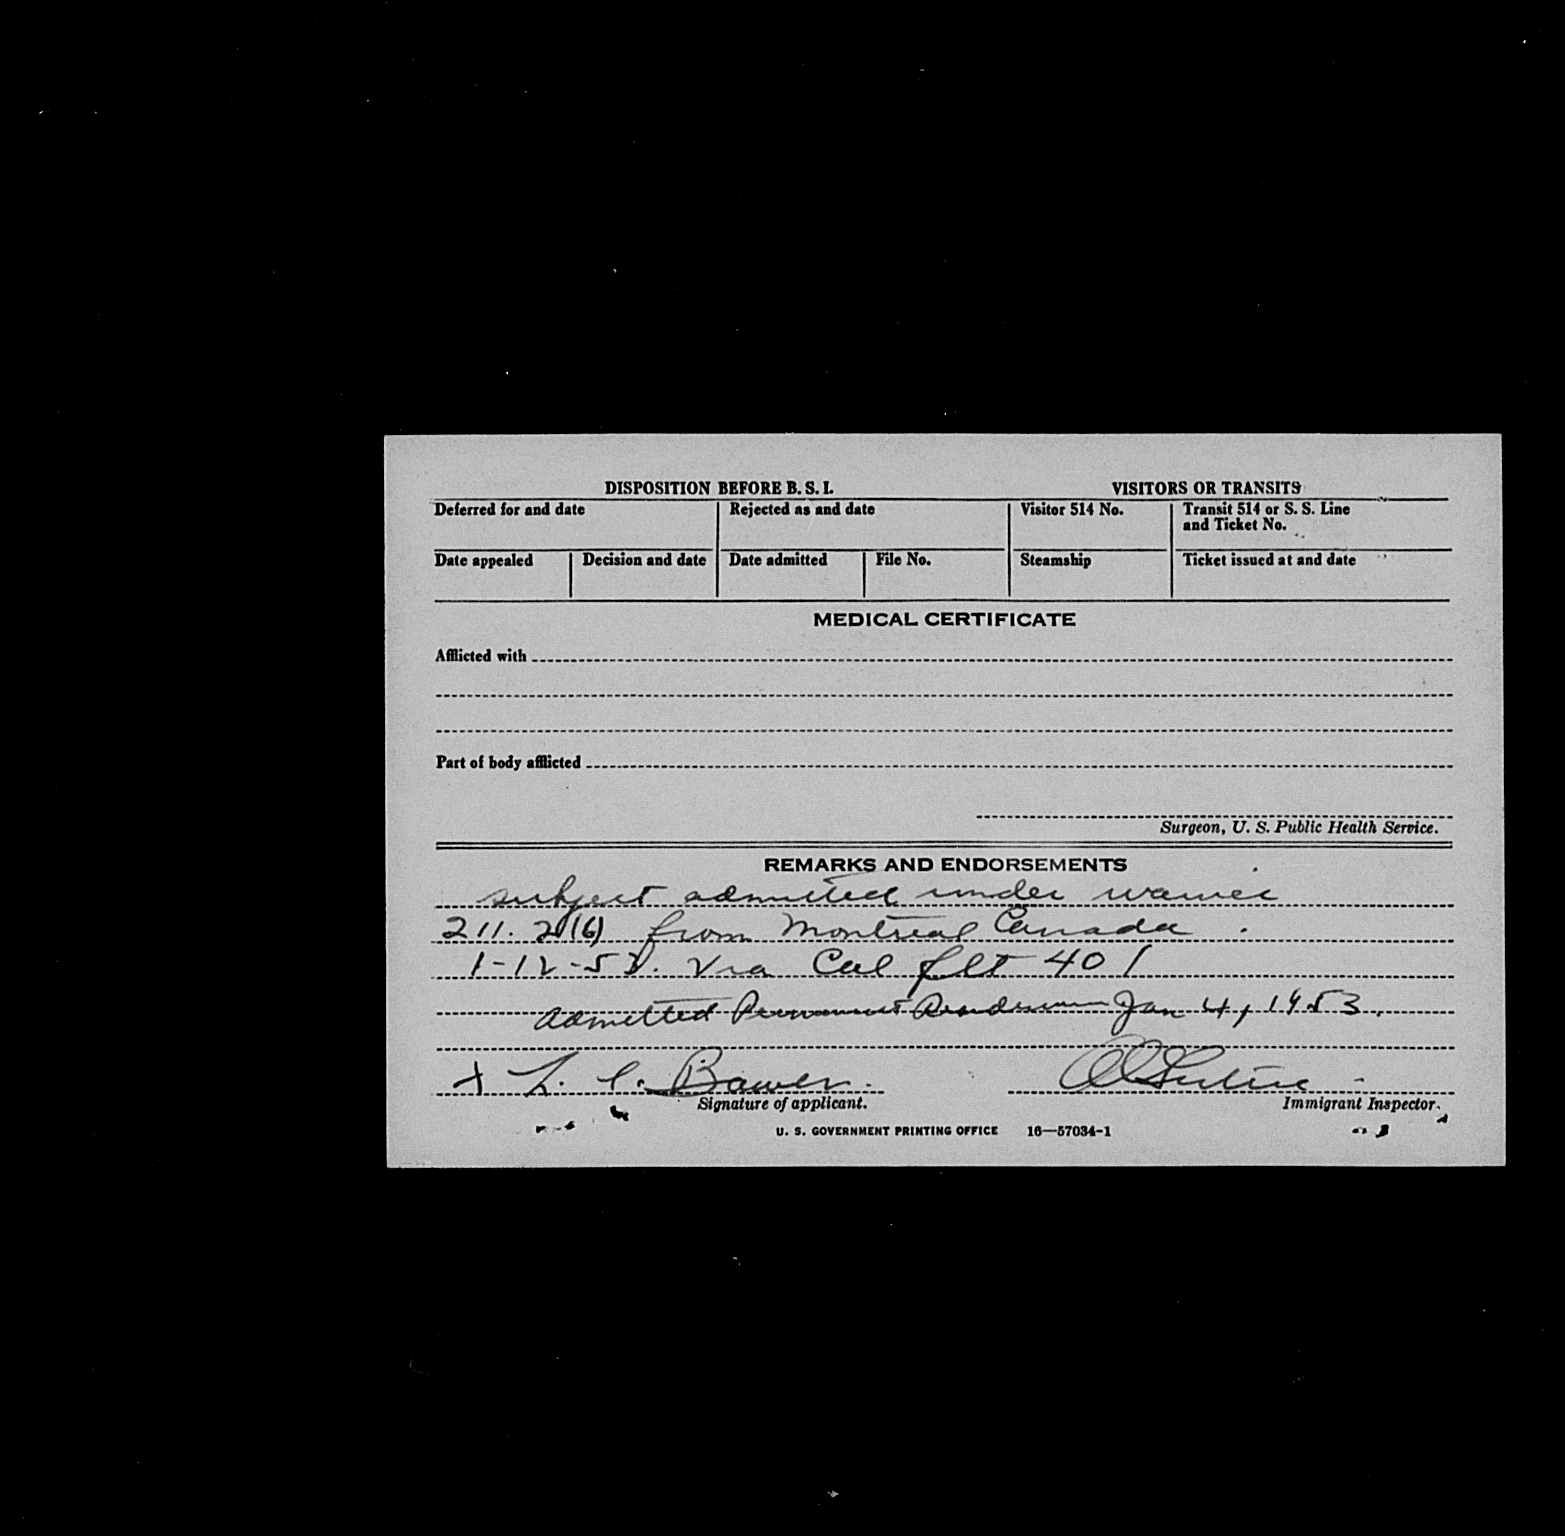 DISPOSITION BEFORE B. S. I. VISITORS OR TRANSITS
Deferred for and date Rejected as and date Visitor 514 No. Transit 514 or S. S. Line
and Ticket No.
Date appealed Decision and date Date admitted File No. Steamship Ticket issued at and date
MEDICAL CERTIFICATE
Afflicted with
Part of body afflicted
Surgeon, U. S. Public Health Service.
REMARKS AND ENDORSEMENTS
subject admitted under waiver
211. from Montreal Canada
Via flt 401
admitted Permanent Jan 4, 1953.
L. C. Bawer
Signature of applicant. Immigrant Inspector.
U. S. GOVERNMENT PRINTING OFFICE 16—57034-1